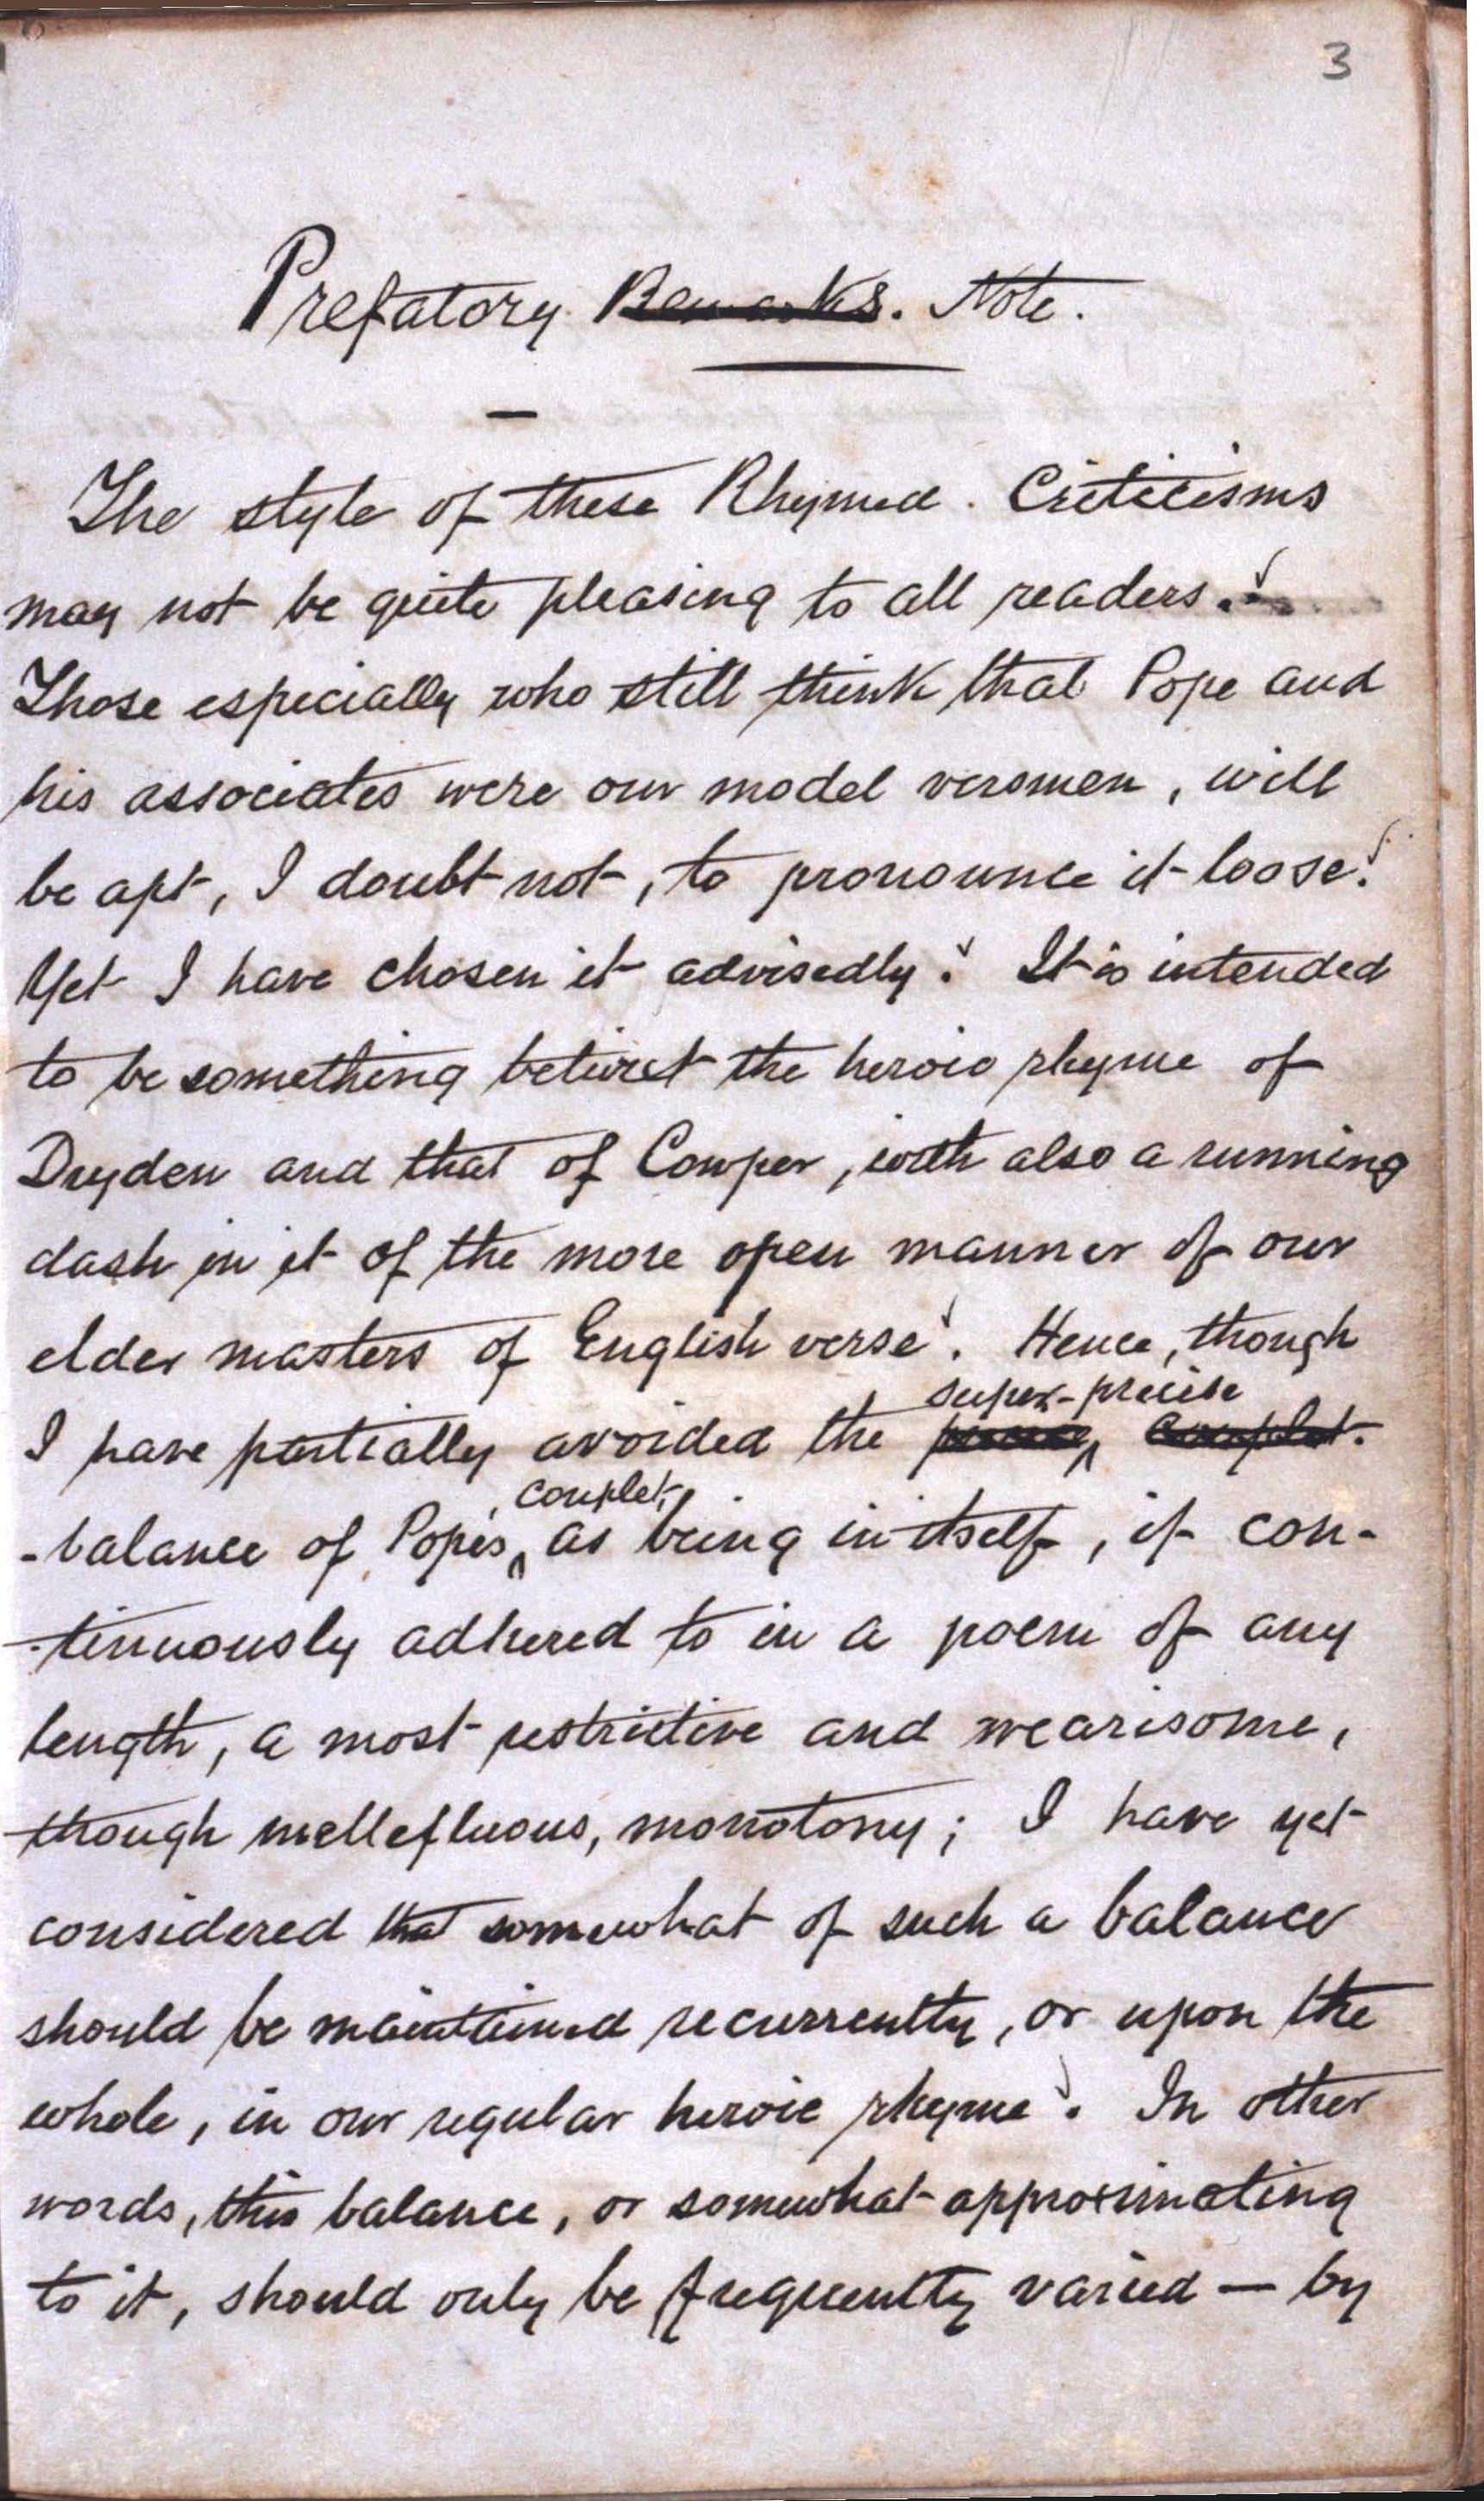 3
Prefatory Remarks. Note.
The style of these Rhymed Criticisms
may not be quite pleasing to all readers.
Those especially who still think that Pope and
his associates were our model versmen, will
be apt, I doubt not, to pronounce it loose.
Yet I have chosen it advisedly. It is intended
to be something betwixt the heroic rhyme of
Dryden and that of Cowper, with also a running
dash in it of the more open manner of our
elder masters of English verse. Hence, though
super-precise
I have partially avoided the couplet.
couplet,
-balance of Pope's as being in itself, if con-
-tinuously adhered to in a poem of any
length, a most restrictive and wearisome,
though mellefluous, monotony; I have yet
considered that somewhat of such a balance
should be maintained recurrently, or upon the
whole, in our regular heroic rhyme. In other
words, this balance, or somewhat approximating
to it, should only be frequently varied — by